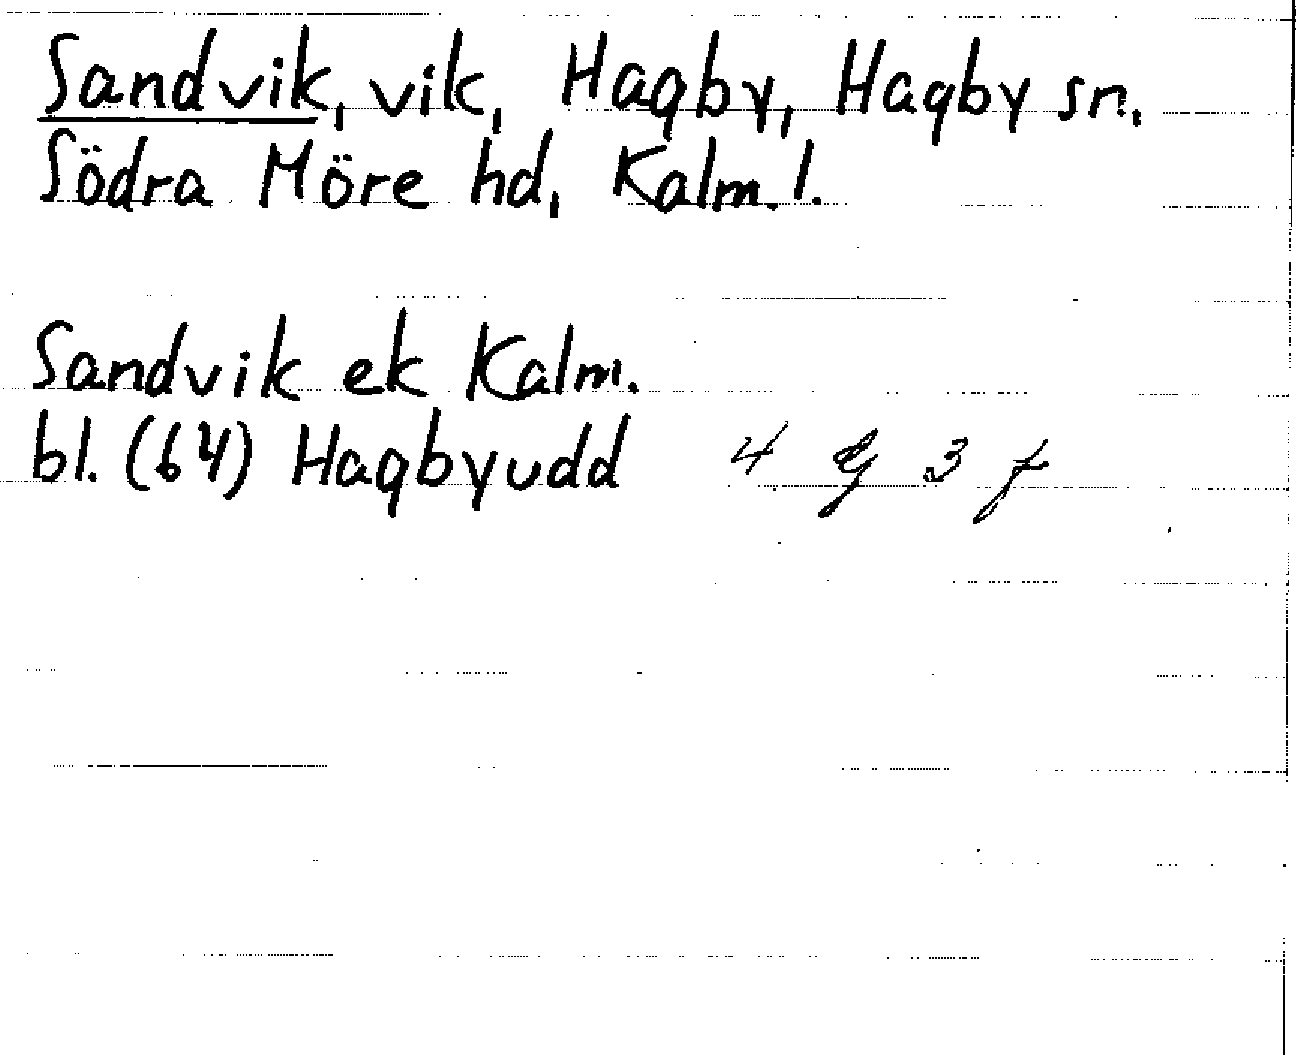 Sandvik, vik, Hagby, Hagby sn,
Södra Möre hd, Kalm. l.
Sandvik ek Kalm.
bl. (64) Hagbyudd 4 G 3 f